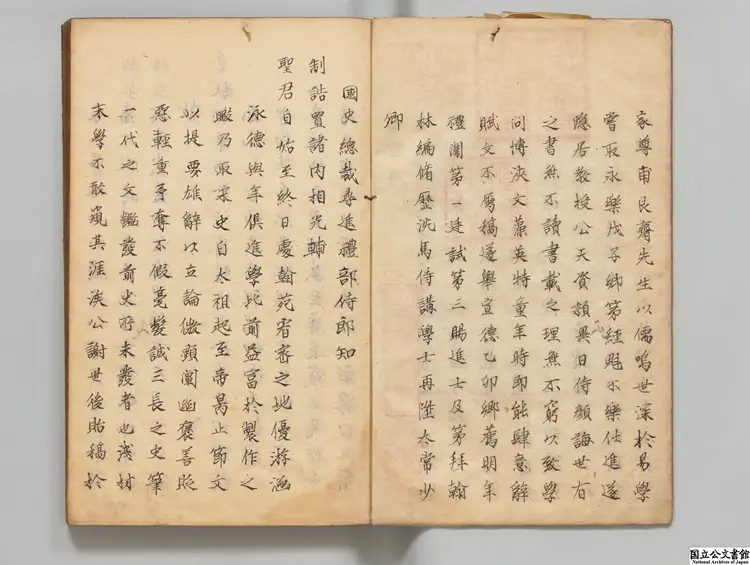 家尊甫艮齋先生以儒鳴世深於易學
嘗取永樂戊子鄉第經魁不樂仕進遂
隱居敎授公天資頴異日侍顏誨世有
之書無不讀書載之理無不窮以致學
问博浹文藻英特童年時即能肆意辭
賦文不屬稿遂舉宣德乙卯鄉薦明年
禮闈第一廷試第三賜進士及第拜翰
林編脩歷洗馬侍講學士再陞太常少
卿
國史總裁尋進禮部侍郎知
制誥置諸内相光輔
聖君自始至終日處翰苑宥密之地優游涵
泳德與年俱進學比前益富於製作之
暇乃取宋史自太祖起至帝昺止節文
以提要雄解以立論微顯闡幽褒善貶
惡輕重予奪不假毫髮誠三長之史筆
一代之文鑑發前史所未發者也淺材
末學不敢窺其涯涘公謝世後貽稿於
国立公文書館
National Archives of Japan